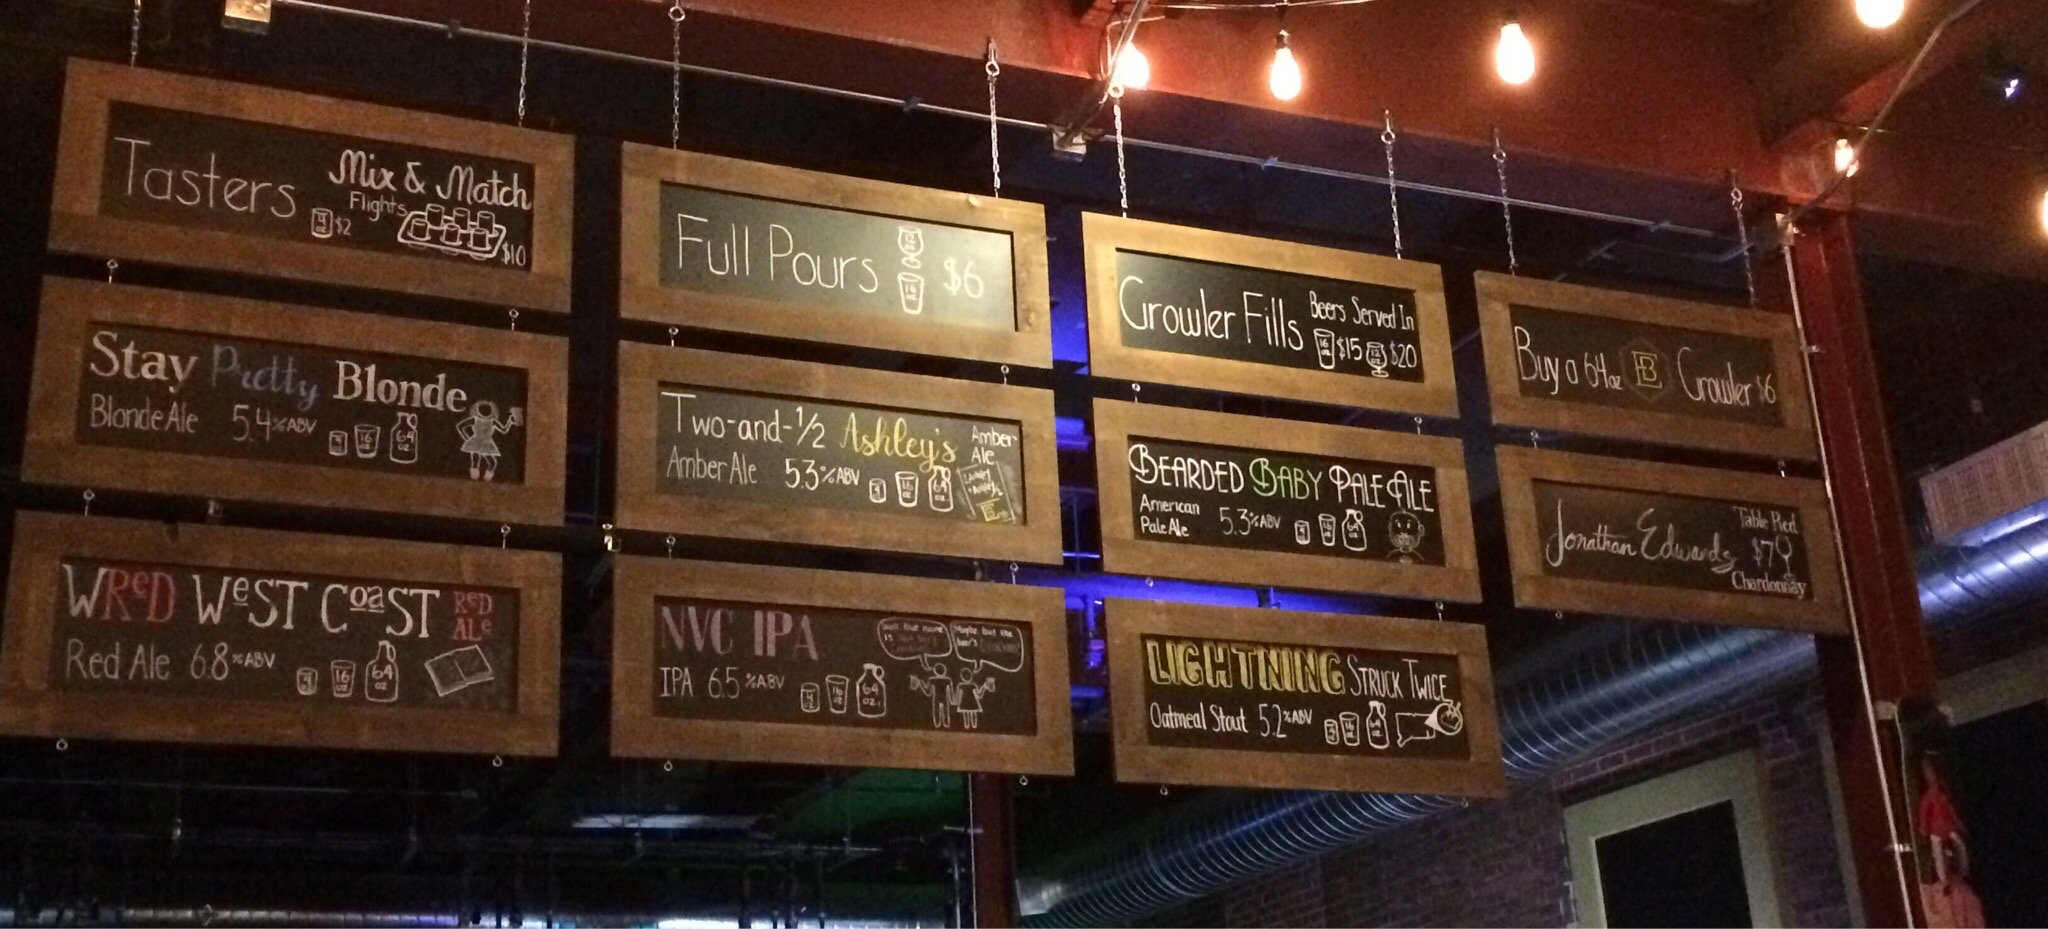 Tasters
4 oz $2
Mix & Match
Flights
$10
Full Pours
12 oz
OR
16 oz
$6
Growler Fills
Beers Served In
16 oz $15 12 oz $20
Buy a 64oz EB Growler $6
Stay Pretty Blonde
Blonde Ale 5.4% ABV
4 16 oz 64 oz
Two-and-1/2 Ashley's
Amber-
Ale
Amber Ale 5.3% ABV
4 16 oz 64 oz
BEARDED BABY PALE ALE
American
Pale Ale
5.3% ABV
16 oz 64 oz
Jonathan Edwards
Table Red
$7
Chardonnay
WReD WeST CoaST
ReD
ALe
Red Ale 6.8% ABV
4 oz 16 oz 64 oz
NVC IPA
well that name
is
Maybe but the
beer's
IPA 6.5% ABV
4 oz 16 oz 64 oz.
LIGHTNING STRUCK TWICE
Oatmeal Stout 5.2% ABV
16 oz 64 oz